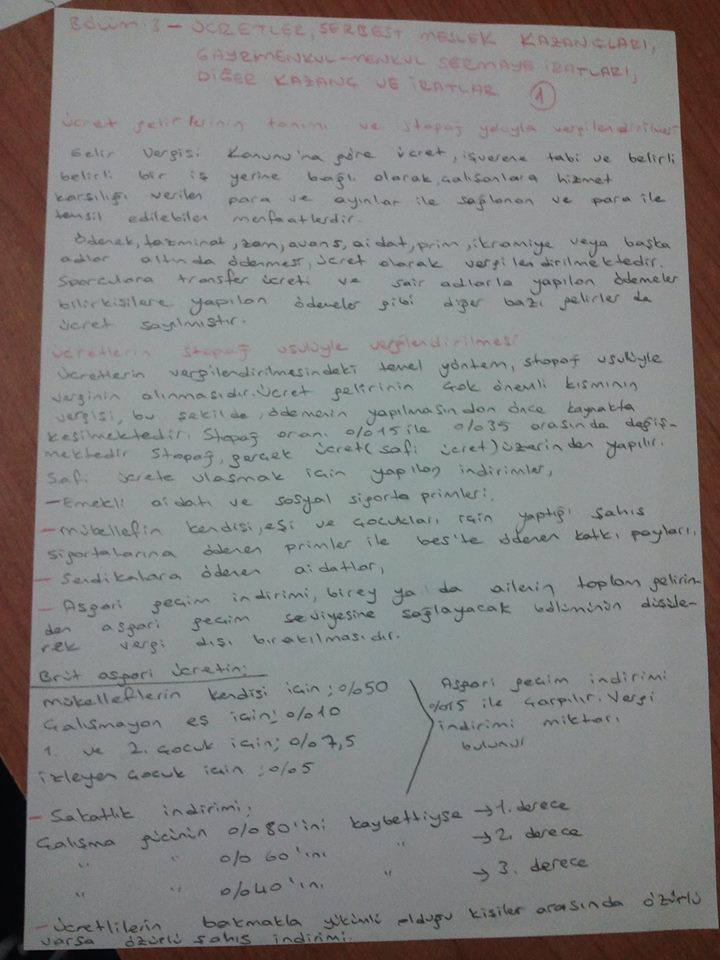 BÖLÜM 3 - ÜCRETLER, SERBEST MESLEK KAZANÇLARI,
GAYRMENKUL-MENKUL SERMAYE İRATLARI,
DİĞER KAZANÇ VE İRATLAR 1
Ücret gelirlerinin tanımı ve stopaj yoluyla vergilendirilmesi
Gelir Vergisi Kanunu'na göre ücret, işverene tabi ve belirli
belirli bir iş yerine bağlı olarak çalışanlara hizmet
karşılığı verilen para ve ayınlar ile sağlanan ve para ile
temsil edilebilen menfaatlerdir.
Ödenek, tazminat, zam, avans, aidat, prim, ikramiye veya başka
adlar altında ödenmesi, ücret olarak vergilendirilmektedir.
Sporculara transfer ücreti ve sair adlarla yapılan ödemeler
bilirkişilere yapılan ödemeler gibi diğer bazı gelirler de
ücret sayılmıştır.
Ücretlerin Stopaj usulüyle vergilendirilmesi
Ücretlerin vergilendirilmesindeki temel yöntem, stopaj usulüyle
verginin alınmasıdır. Ücret gelirinin çok önemli kısmının
vergisi, bu şekilde, ödemenin yapılmasından önce kaynakta
kesilmektedir. Stopaj oranı %15 ile %35 arasında değiş-
mektedir Stopaj, gerçek ücret (safi ücret) üzerinden yapılır.
Safi ücrete ulaşmak için yapılan indirimler,
- Emekli aidatı ve sosyal sigorta primleri.
- Mükellefin kendisi, eşi ve çocukları için yaptığı şahıs
sigortalarına ödenen primler ile bes'te ödenen katkı payları,
- Sendikalara ödenen aidatlar,
- Asgari geçim indirimi, birey ya da ailenin toplam gelirin-
den asgari geçim seviyesine sağlayacak bölümünün düşüle-
rek vergi dışı bırakılmasıdır.
Brüt asgari ücretin;
mükelleflerin kendisi için; %50
Çalışmayan eş için; %10
1. ve 2. çocuk için; %7,5
izleyen çocuk için; %5
Asgari geçim indirimi
%15 ile çarpılır. Vergi
indirimi miktarı
bulunur
- Sakatlık indirimi;
Çalışma gücünün %80'ini kaybettiyse → 1. derece
" " %60'ını " → 2. derece
" " %40'ını " → 3. derece
- Ücretlilerin bakmakla yükümlü olduğu kişiler arasında özürlü
varsa özürlü şahıs indirimi.